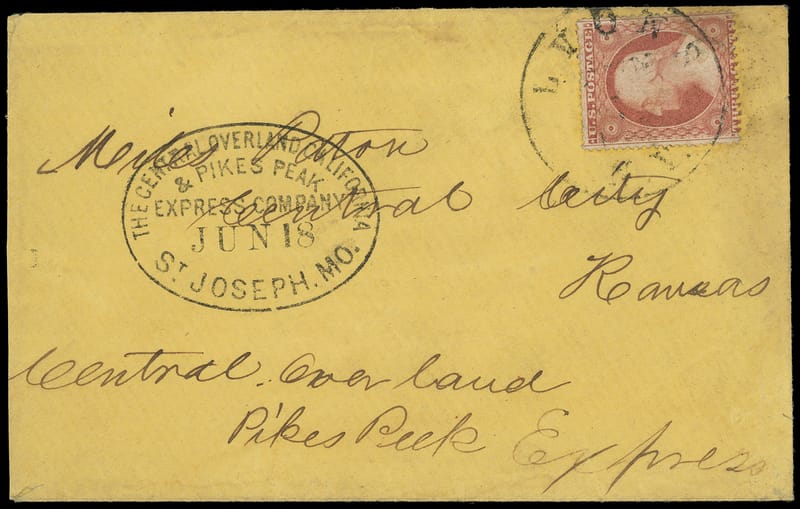 LYONS
U.S. POSTAGE
Miles Patton
Central City
Kansas
Central Overland
Pikes Peek Express
THE CENTRAL OVERLAND CALIFORNIA
& PIKES PEAK
EXPRESS COMPANY
JUN 18
ST JOSEPH. MO.